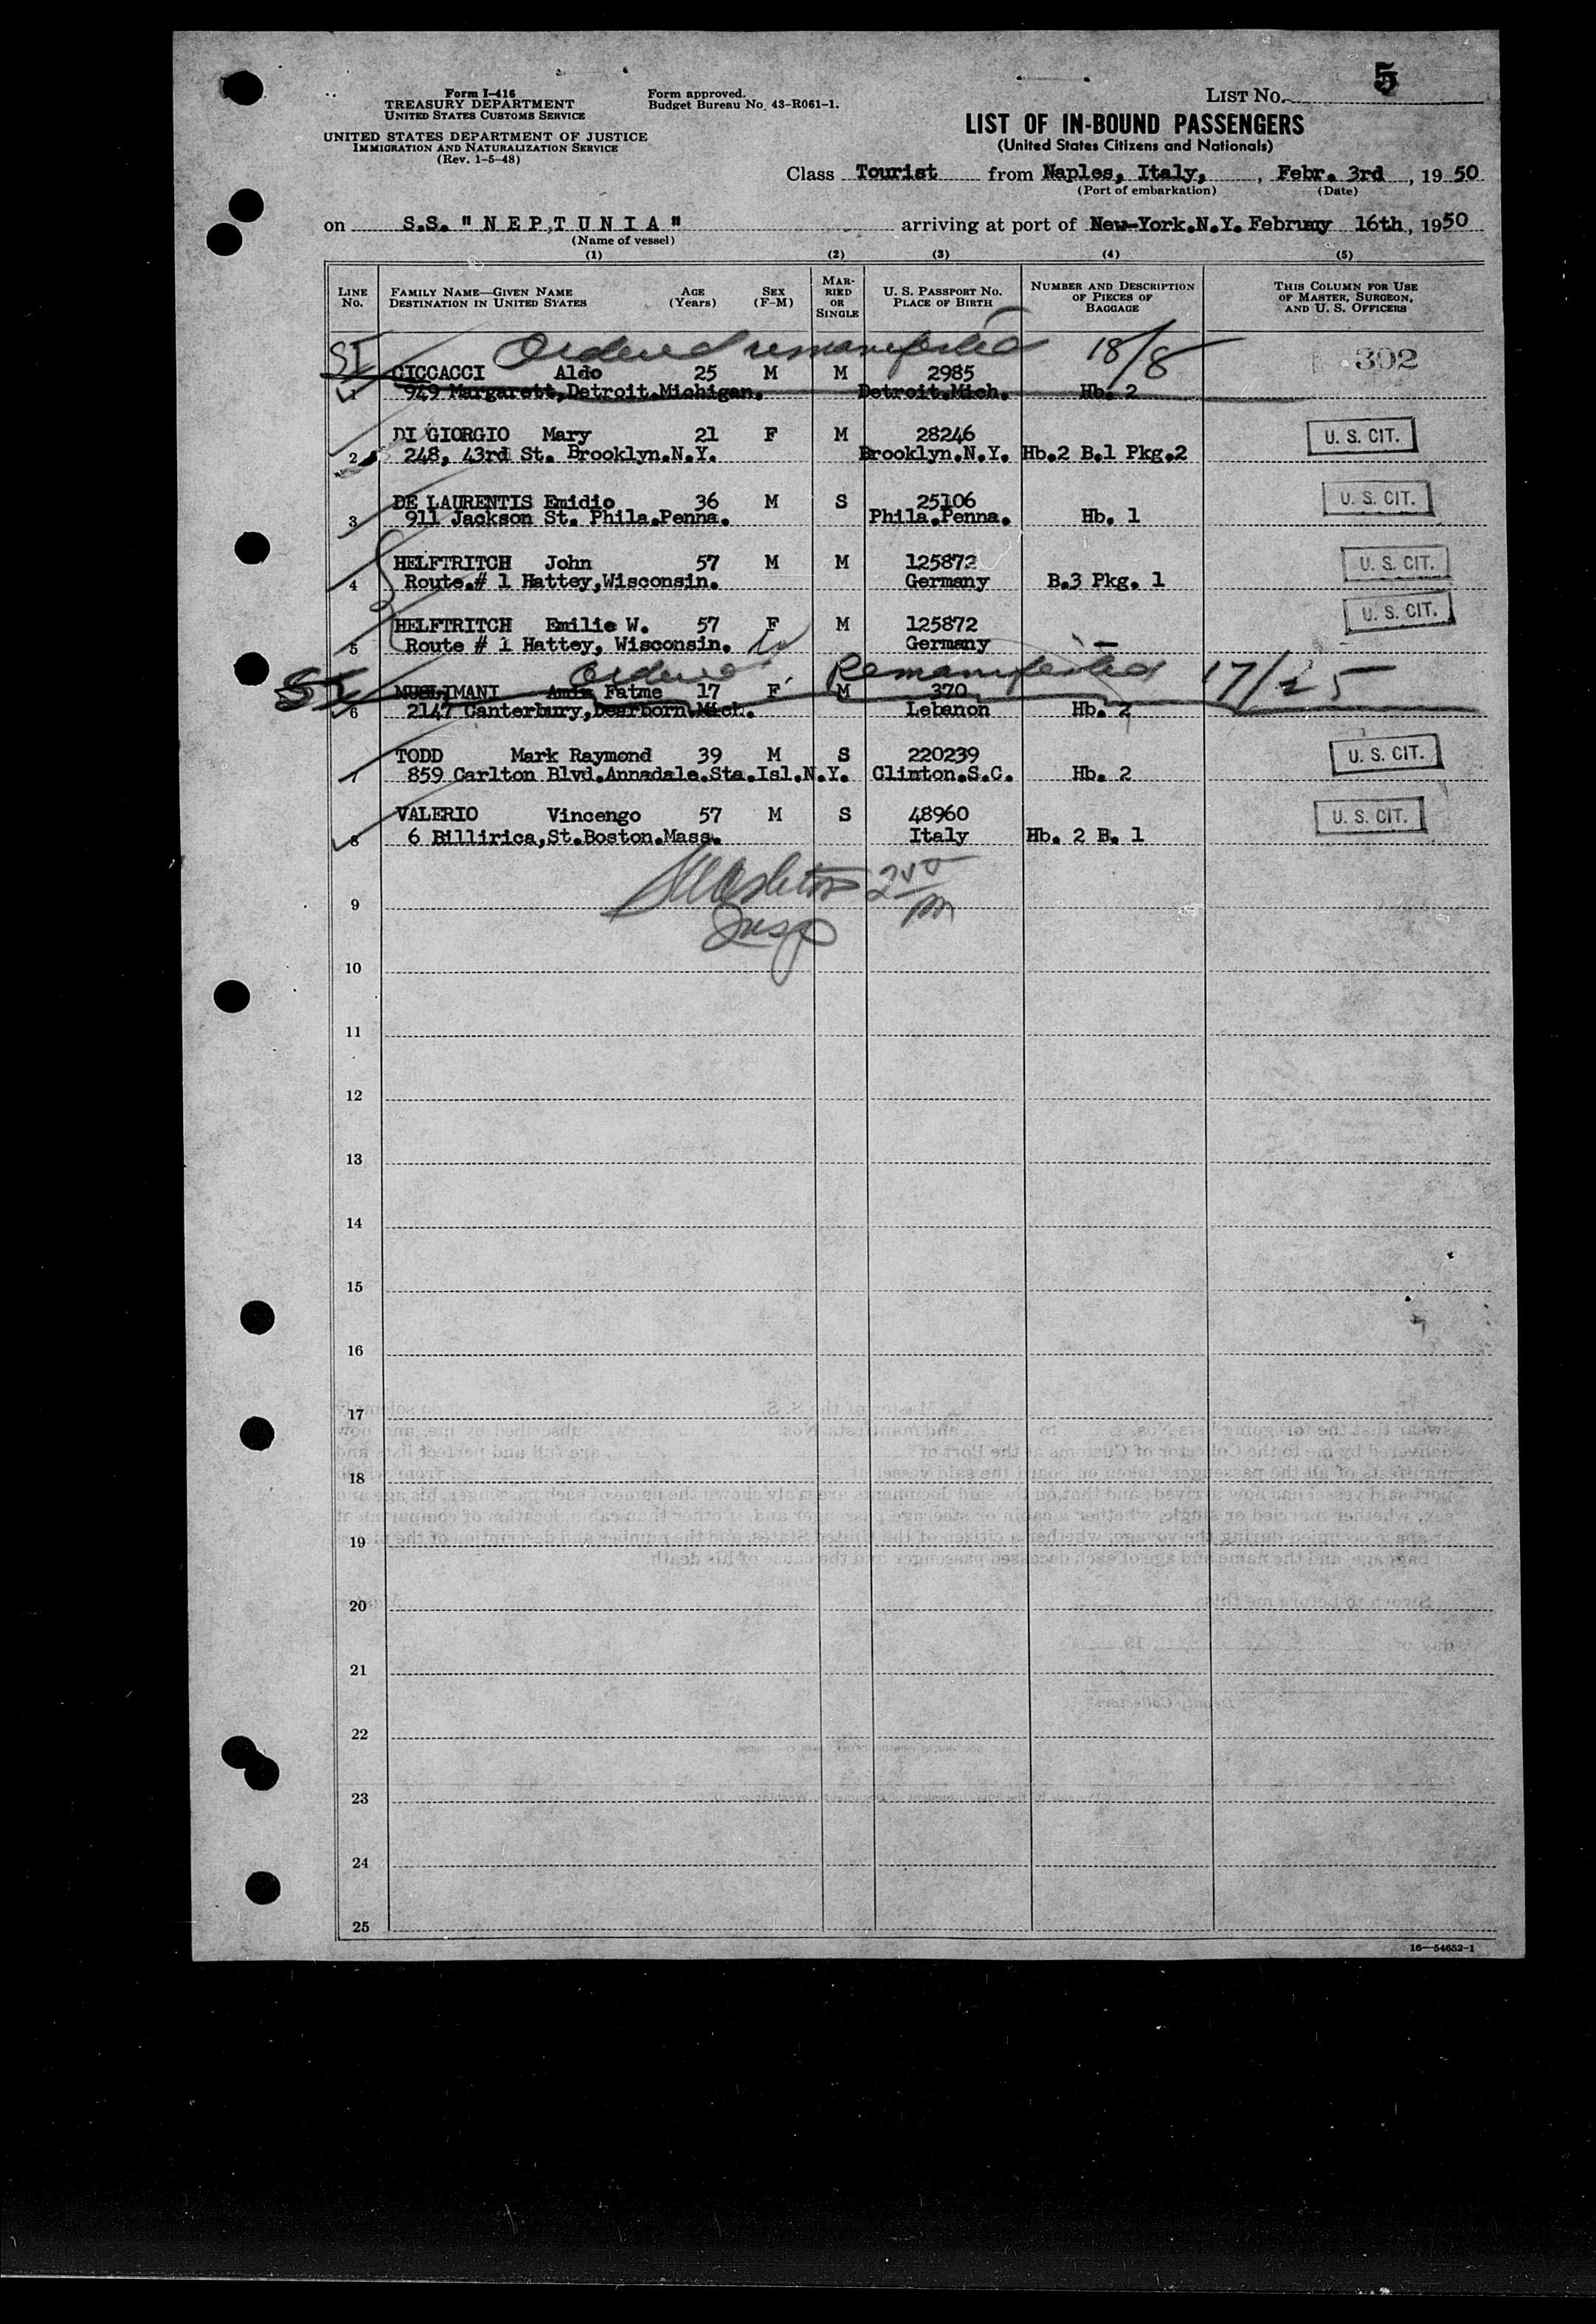 5
Form I-416
TREASURY DEPARTMENT
UNITED STATES CUSTOMS SERVICE
UNITED STATES DEPARTMENT OF JUSTICE
IMMIGRATION AND NATURALIZATION SERVICE
(Rev. 1-5-48)
Form approved.
Budget Bureau No. 43-R061-1.
LIST No.
LIST OF IN-BOUND PASSENGERS
(United States Citizens and Nationals)
Class Tourist from Naples, Italy, , Febr. 3rd , 19 50
(Port of embarkation) (Date)
on S.S. "NEPTUNIA" arriving at port of New-York.N.Y. February 16th, 1950
(Name of vessel)
(1) (2) (3) (4) (5)
LINE No. FAMILY NAME—GIVEN NAME DESTINATION IN UNITED STATES AGE (Years) SEX (F-M) MARRIED OR SINGLE U. S. PASSPORT No. PLACE OF BIRTH NUMBER AND DESCRIPTION OF PIECES OF BAGGAGE THIS COLUMN FOR USE OF MASTER, SURGEON, AND U. S. OFFICERS
SI Ordered remanifested 18/8 302
CICCACCI Aldo 25 M M 2985
1 949 Margarett,Detroit.Michigan. Detroit.Mich. Hb. 2
DI GIORGIO Mary 21 F M 28246 U. S. CIT.
2 248, 43rd St. Brooklyn.N.Y. Brooklyn.N.Y. Hb.2 B.1 Pkg.2
DE LAURENTIS Emidio 36 M S 25106 U. S. CIT.
3 911 Jackson St. Phila.Penna. Phila.Penna. Hb. 1
HELFTRITCH John 57 M M 125872 U. S. CIT.
4 Route.# 1 Hattey,Wisconsin. Germany B.3 Pkg. 1
HELFTRITCH Emilie W. 57 F M 125872 U. S. CIT.
5 Route # 1 Hattey, Wisconsin. Germany —
SI Ordered Remanifested 17/25
MUSLIMANI Amin Fatme 17 F M 370
6 2147 Canterbury,Dearborn.Mich. Lebanon Hb. 2
TODD Mark Raymond 39 M S 220239 U. S. CIT.
7 859 Carlton Blvd.Annadale.Sta.Isl.N.Y. Clinton.S.C. Hb. 2
VALERIO Vincengo 57 M S 48960 U. S. CIT.
8 6 Billirica,St.Boston.Mass. Italy Hb. 2 B. 1
9
Insp
10
11
12
13
14
15
16
17
18
19
20
21
22
23
24
25
16—54652-1